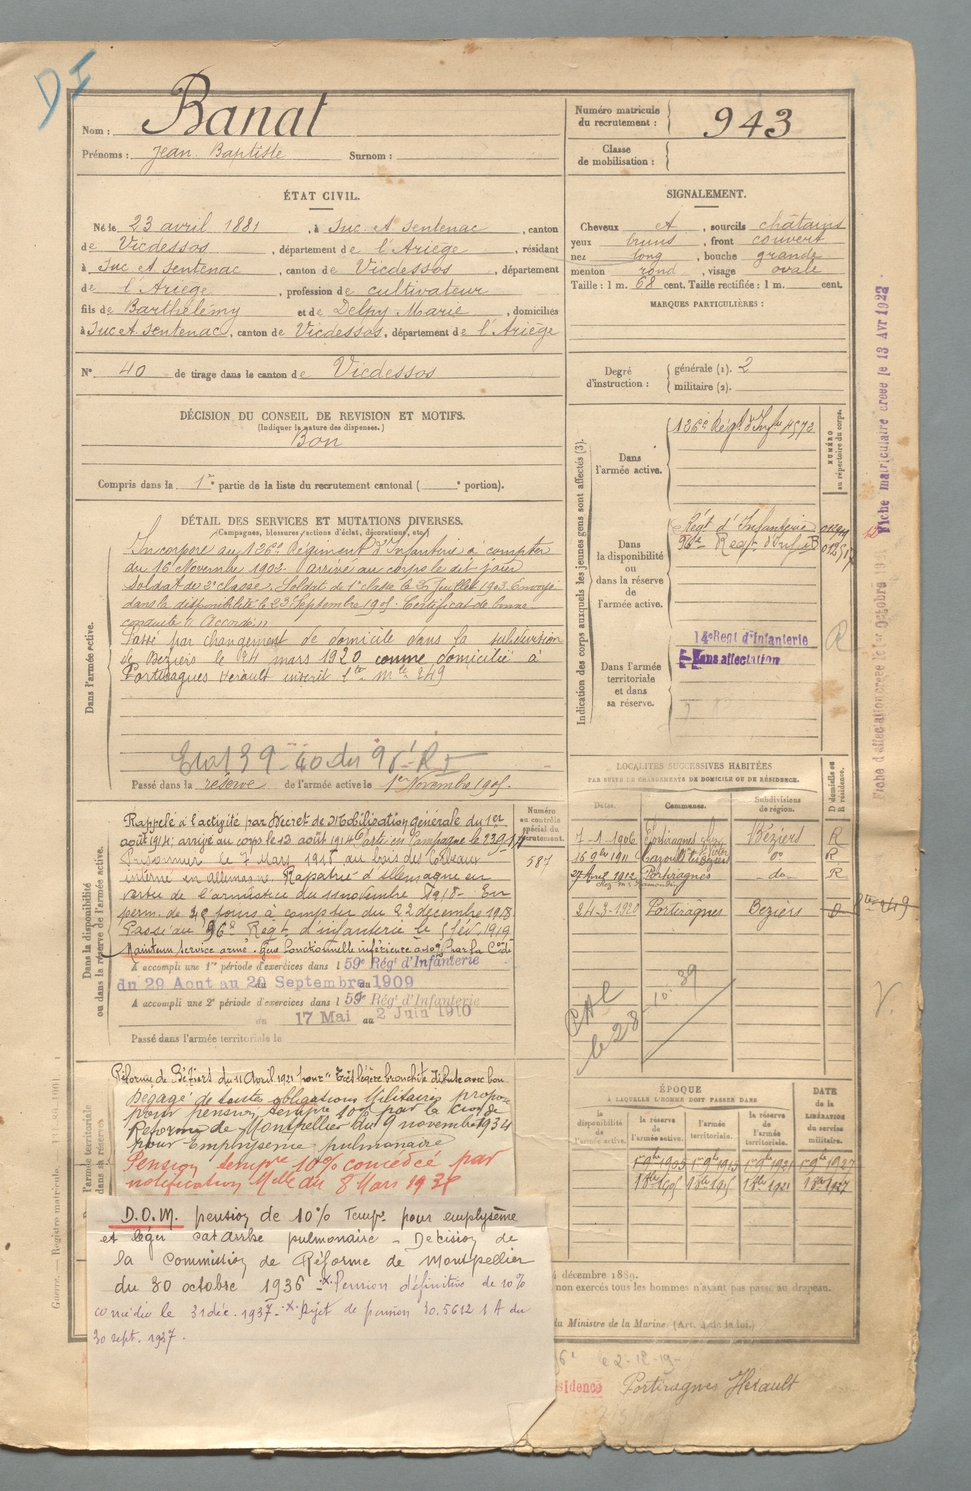 D I
Nom : Banat
Prénoms : Jean Baptiste Surnom :
Numéro matricule du recrutement : 943
Classe de mobilisation :
ÉTAT CIVIL.
Né le 23 avril 1881, à Suc et Sentenac, canton
de Vicdessos, département de l'Ariège, résidant
à Suc et Sentenac, canton de Vicdessos, département
de l'Ariège, profession de cultivateur
fils de Barthélémy et de Delpy Marie, domiciliés
à Suc et Sentenac, canton de Vicdessos, département de l'Ariège
N° 40 de tirage dans le canton de Vicdessos
SIGNALEMENT.
Cheveux et, sourcils châtains
yeux bruns, front couvert
nez long, bouche grande
menton rond, visage ovale
Taille : 1 m. 68 cent. Taille rectifiée : 1 m. cent.
MARQUES PARTICULIÈRES :
Degré d'instruction : générale (1). 2
militaire (2).
DÉCISION DU CONSEIL DE REVISION ET MOTIFS.
(Indiquer la nature des dispenses.)
Bon
Compris dans la 1re partie de la liste du recrutement cantonal ( e portion).
DÉTAIL DES SERVICES ET MUTATIONS DIVERSES.
(Campagnes, blessures, actions d'éclat, décorations, etc.)
Dans l'armée active.
Incorporé au 126e Régiment d'Infanterie à compter
du 16 Novembre 1902. arrivé au corps le dit jour
Soldat de 2e classe. Soldat de 1e classe le Juillet 1903. Envoyé
dans la disponibilité le 23 Septembre 1905. Certificat de bonne
conduite "Accordé"
Passé par changement de domicile dans la subdivision
de Béziers le 24 mars 1920 comme domicilié à
Portiragnes Hérault inscrit 1te mle 249
Etat 39-40 du 96e R I
Passé dans la réserve de l'armée active le 1er Novembre 1905.
Indication des corps auxquels les jeunes gens sont affectés (3).
NUMÉRO au répertoire du corps.
Dans l'armée active.
126e Régt d'Infie 4572
Dans la disponibilité ou dans la réserve de l'armée active.
Régt d'Infanterie
96e Régt d'Inf
Dans l'armée territoriale et dans sa réserve.
14e Régt d'Infanterie
Sans affectation
R
Fiche matriculaire créée le 13 Avr 1923
Fiche d'affectation créée le 1er Octobre
LOCALITÉS SUCCESSIVES HABITÉES
PAR SUITE DE CHANGEMENTS DE DOMICILE OU DE RÉSIDENCE.
Dates. Communes. Subdivisions de région. D domicile ou R résidence.
7-1-1906 Portiragnes Béziers R
16 9bre 1911 Cazouls les Béziers do R
27 Avril 1912 Portiragnes do R
24-3-1920 Portiragnes Béziers D
PAL
le 28-10-39
Dans la disponibilité ou dans la réserve de l'armée active.
Numéro au contrôle spécial du recrutement.
587
Rappelé à l'activité par Décret de Mobilisation générale du 1er
août 1914, arrivé au corps le 13 août 1914. Parti en Campagne le
Prisonnier le 7 Mars 1915 au bois des Corbeaux
interné en allemagne. Rapatrié d'Allemagne en
vertu de l'armistice du 11 novembre 1918. En
perm. de jours à compter du 22 décembre 1918.
Passé au 96e Régt d'infanterie le 5 fév. 1919
Maintenu service armé. Gêne fonctionnelle inférieure à 10% par la
A accompli une 1re période d'exercices dans l 59e Rég' d'Infanterie
du 29 Aout au 20 Septembre 1909
A accompli une 2e période d'exercices dans l 59e Rég' d'Infanterie
du 17 Mai au 2 Juin 1910
Passé dans l'armée territoriale le
l'armée territoriale
dans sa réserve
Réforme de Béziers du 11 Avril 1921 pour "Très légère bronchite
Dégagé de toutes obligations Militaires proposé
pour pension tempre 10% par la Cion de
Réforme de Montpellier du 9 novembre 1934
pour Emphysème pulmonaire
Pension tempre 10% concédée par
notification Mlle du 8 Mars 1935
D.O.M. pension de 10% Tempre pour emphysème
et léger catarrhe pulmonaire - Décision de
la Commission de Réforme de Montpellier
du 30 octobre 1936 -x- Pension définitive de 10%
concédée le 31 déc. 1937 -x- Rejet de pension 30.5612 1 A du
30 sept. 1937.
ÉPOQUE
À LAQUELLE L'HOMME DOIT PASSER DANS
la disponibilité de l'armée active.
la réserve de l'armée active.
l'armée territoriale.
la réserve de l'armée territoriale.
DATE de la LIBÉRATION du service militaire.
décembre 1889.
non exercés tous les hommes n'ayant pas passé au drapeau.
du Ministre de la Marine. (Art. 4 de la loi.)
Guerre. — Registre matricule.
Portiragnes Hérault